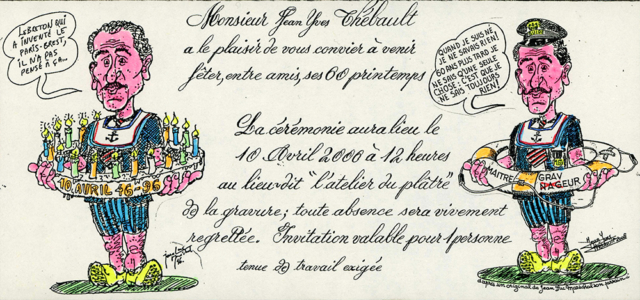 LEBRETON QUI
A INVENTÉ LE
PARIS-BREST,
IL N'A PAS
PENSÉ À ÇA...
10 AVRIL 46-96
Monsieur Jean Yves Thébault
a le plaisir de vous convier à venir
fêter, entre amis, ses 60 printemps
La cérémonie aura lieu le
10 Avril 2006 à 12 heures
au lieu-dit "l'atelier du plâtre"
de la gravure; toute absence sera vivement
regrettée. Invitation valable pour 1 personne
tenue de travail exigée
QUAND JE SUIS NÉ,
JE NE SAVAIS RIEN!
60 ANS PLUS TARD JE
NE SAIS QU'UNE SEULE
CHOSE: C'EST QUE JE
NE SAIS TOUJOURS
RIEN!
MAITRE GRAV
RAGEUR
d'après un original de Jean Luc